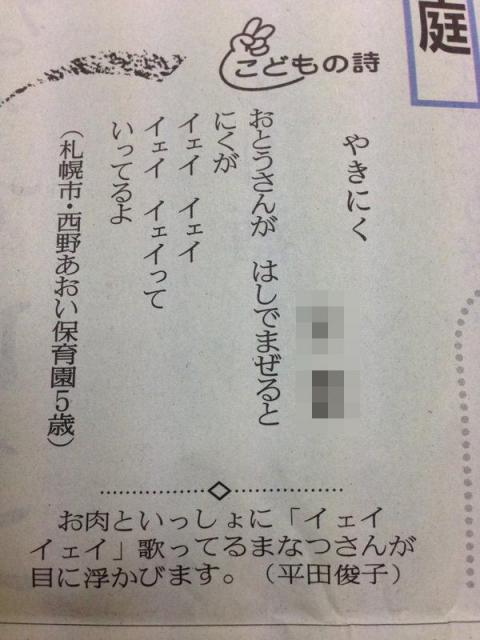 庭
こどもの詩
やきにく
おとうさんが　はしでまぜると
にくが
イェイ　イェイ
イェイ　イェイって
いってるよ
（札幌市・西野あおい保育園5歳）
お肉といっしょに「イェイ
イェイ」歌ってるまなつさんが
目に浮かびます。（平田俊子）